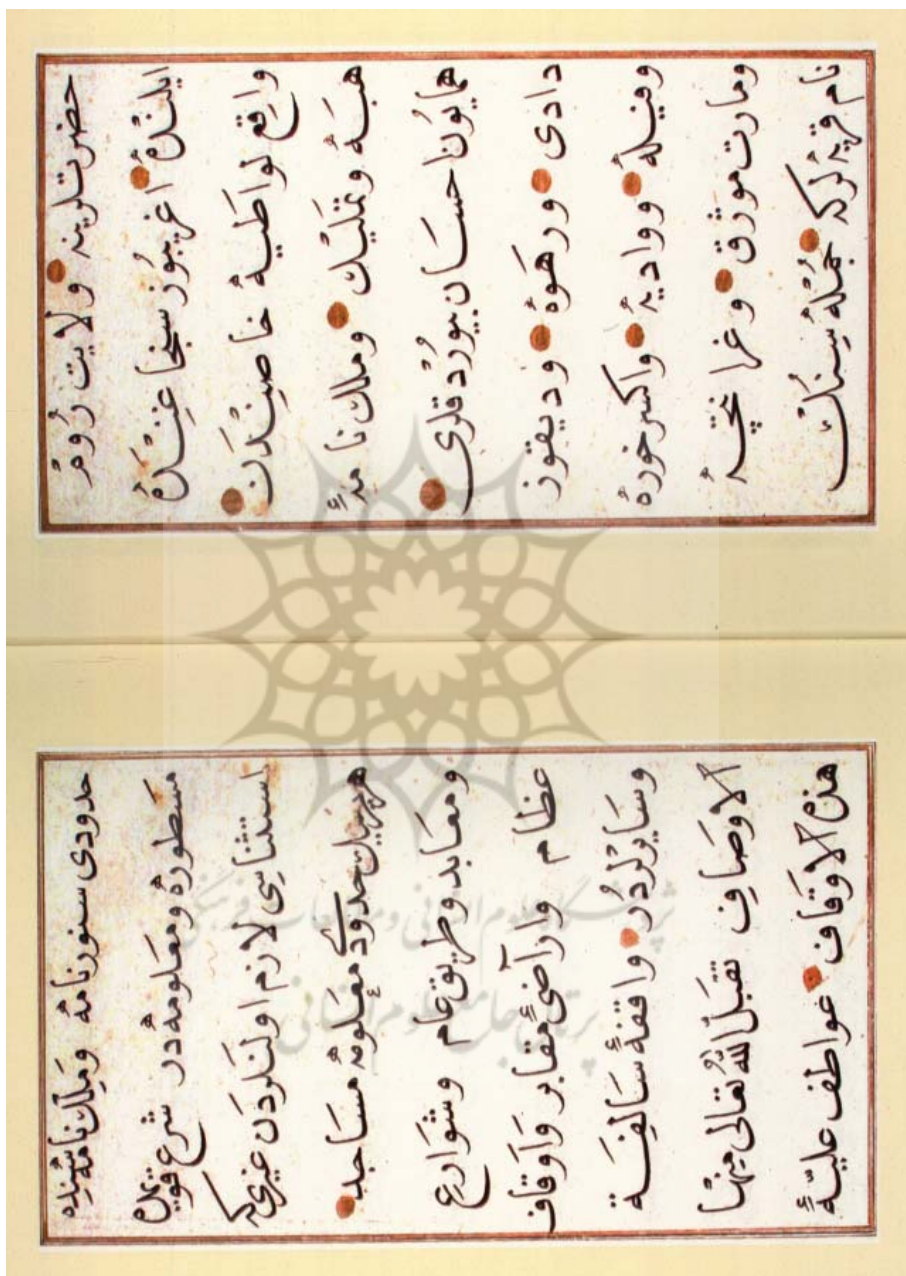 حضرتلرينه ولايت روم
ايلنده اغريبوز سنجاغنده
واقع لواطيه خاصندن
هبه وتمليك وملك نامهٔ
همايون احسان بيوردقلرى
دادى ورهوه وديقتوز
وفيله وواديه واكسرخوره
ومارت موزق وغرا نچه
نام قريه لركه جمله سنك
حدودى سنورنامه وملك نامه سنده
مسطوره ومعلومه در شرع قويمله
استثناسى لازم اولنلردن غيرى كه
حدود معلومه مساجد
ومعابد وطريق عام وشوارع
عظام واراضئ مقابر واوقاف
وسايرلردر واقفهٔ سالفة
الاوصاف تقبل الله تعالى منها
هذه الاوقاف عواطف عليهٔ
پژوهشگاه علوم انسانی و مطالعات فرهنگی
پرتال جامع علوم انسانی